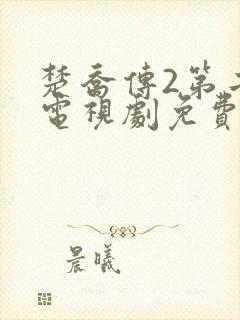 楚喬傳2第
電視劇免費
晨曦